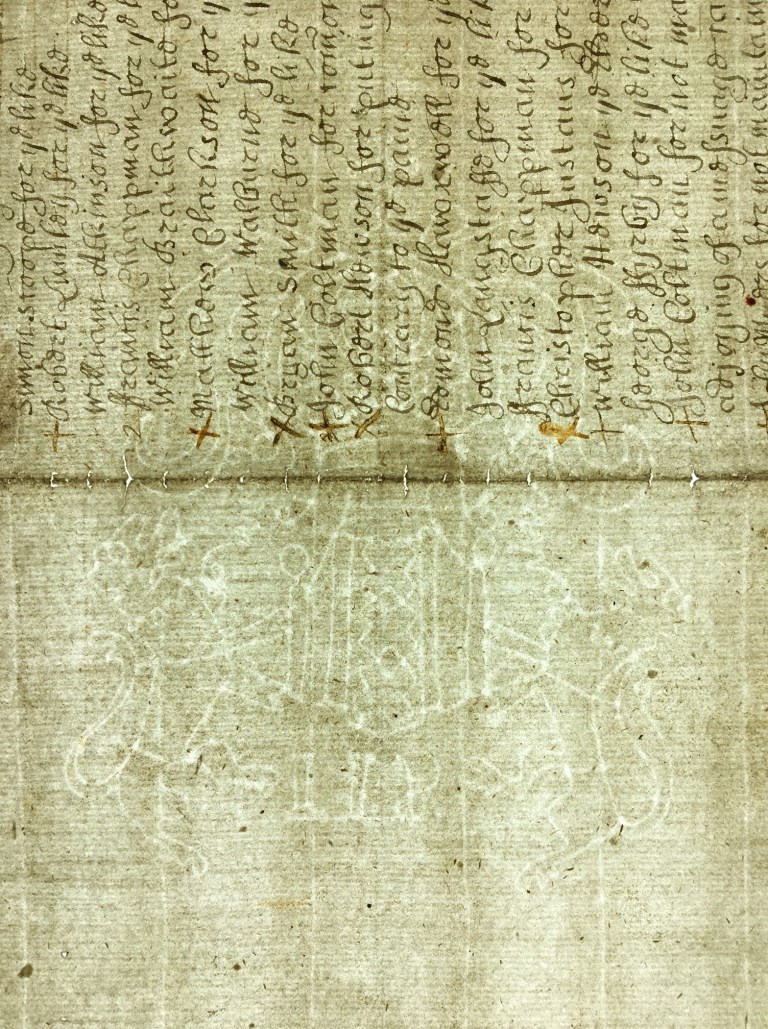 Simon Stoope for ye like
+ Robert Lumley for ye like
William Atkinson for ye like
2 Francis Chappman for ye l
William Braithwaite fo
+ Mathew Clarkson for y
William Walburne for y
+ Bryan Smith for ye like
+ John Coltman for comon
+ Robert Howson for puting
Contrarie to ye paine
+ Edmond Hawxwell for y
John Langstaffe for ye lik
Francis Chappman for
+ Christopher Justans for
+ William Howson ye
George Kyrby for ye like
+ John Coltman for not ma
adjoyning
+ for not maintain